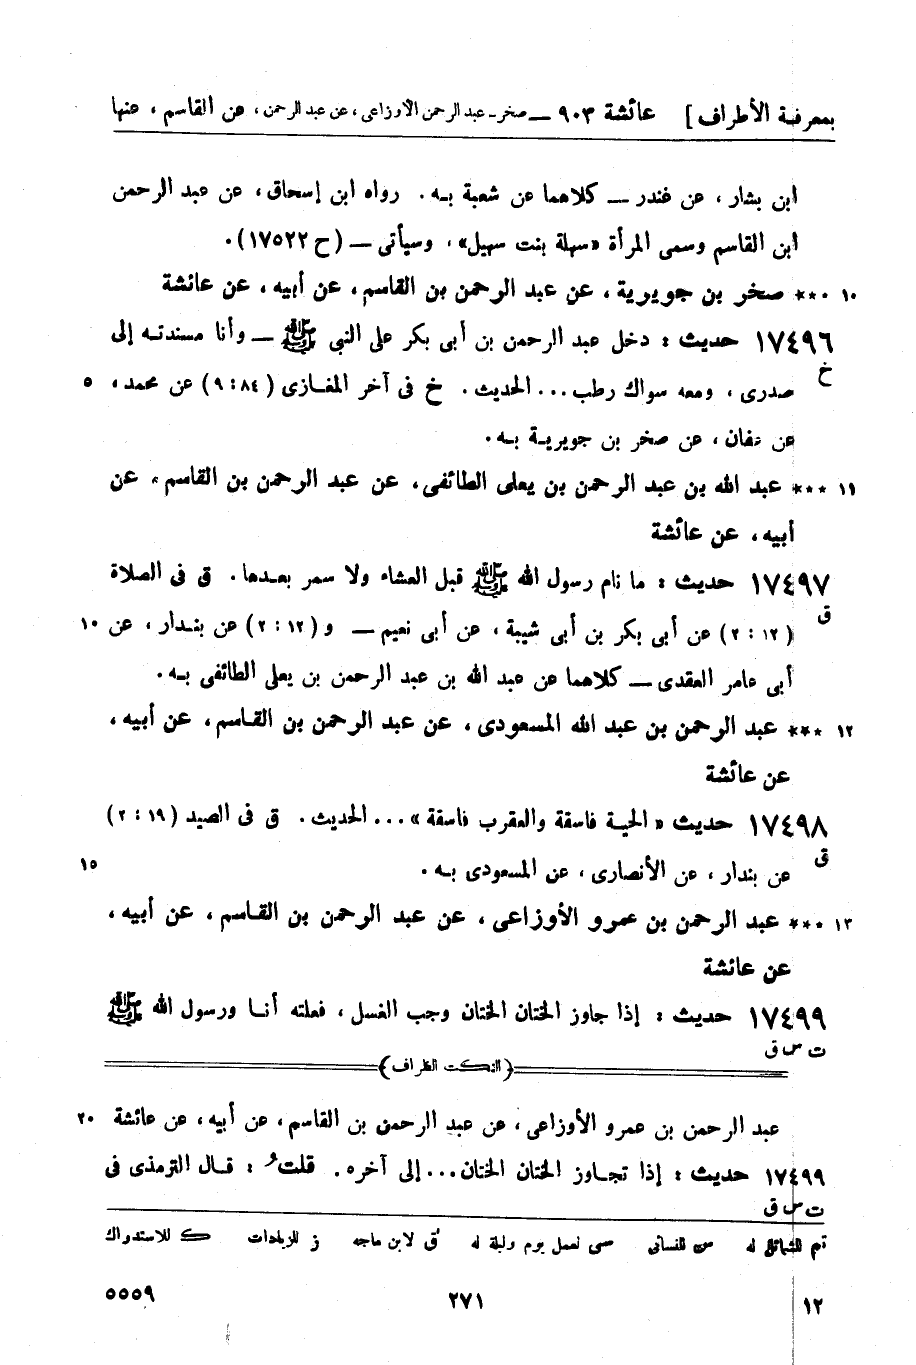 بمعرفة الأطراف] عائشة ٩٠٣ — صخر- عبد الرحمن الأوزاعى ، عن عبد الرحمن ، عن القاسم ، عنها
ابن بشار ، عن غندر — كلاهما عن شعبة بـه . رواه ابن إسحاق ، عن عبد الرحمن
ابن القاسم وسمى المرأة «سهلة بنت سهيل» ، وسيأتى — (ح ١٧٥٢٢) .
١٠ *** صخر بن جويرية ، عن عبد الرحمن بن القاسم ، عن أبيه ، عن عائشة
١٧٤٩٦ حديث : دخل عبد الرحمن بن أبى بكر على النبى ﷺ — وأنا مسندتـه إلى
خ
صدرى ، ومعه سواك رطب ... الحديث . خ فى آخر المغازى (٨٤ : ٩) عن محمد ، ٥
عن عفان ، عن صخر بن جويريـة بـه .
١١ *** عبد الله بن عبد الرحمن بن يعلى الطائفى ، عن عبد الرحمن بن القاسم ، عن
أبيه ، عن عائشة
١٧٤٩٧ حديث : ما نام رسول الله ﷺ قبل العشاء ولا سمر بعـدها . ق فى الصلاة
ق
(١٢ : ٢) عن أبى بكر بن أبى شيبة ، عن أبى نعيم — و (١٢ : ٢) عن بنـدار ، عن ١٠
أبى عامر العقدى — كلاهما عن عبد الله بن عبد الرحمن بن يعلى الطائفى بـه .
١٢ *** عبد الرحمن بن عبد الله المسعودى ، عن عبد الرحمن بن القـاسم ، عن أبيه ،
عن عائشة
١٧٤٩٨ حديث « الحيـة فاسقة والعقرب فاسقة » ... الحديث . ق فى الصيد (١٩ : ٢)
ق
عن بندار ، عن الأنصارى ، عن المسعودى بـه . ١٥
١٣ *** عبد الرحمن بن عمرو الأوزاعى ، عن عبد الرحمن بن القـاسم ، عن أبيه ،
عن عائشة
١٧٤٩٩ حديث : إذا جاوز الختان الختان وجب الغسل ، فعلته أنـا ورسول الله ﷺ
ت س ق
(النكت الظراف)
عبد الرحمن بن عمرو الأوزاعى ، عن عبد الرحمن بن القاسم ، عن أبيه ، عن عائشة ٢٠
١٧٤٩٩ حديث : إذا تجـاوز الختان الختان ... إلى آخره . قلتُ : قـال الترمذى فى
ت س ق
تم للشمائل له س للنسائى سى لعمل يوم وليلة له ق لابن ماجه ز للزيادات ك للاستدراك
١٢ ٢٧١ ٥٥٥٩